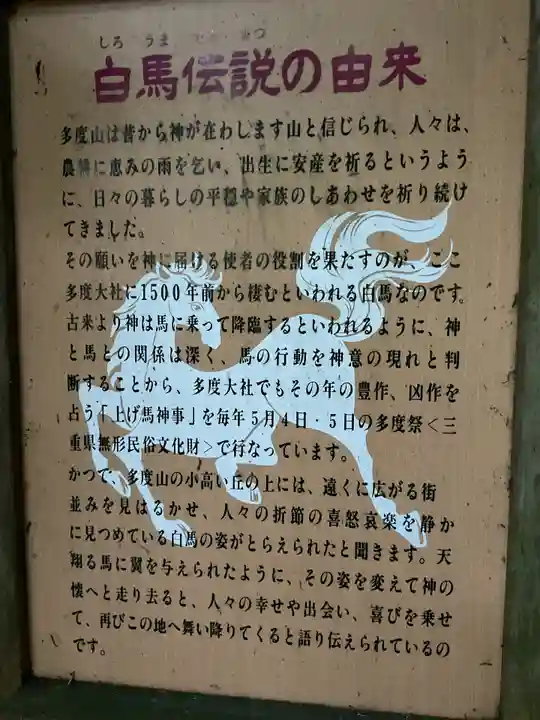 しろ うま でん せつ
白馬伝説の由来
多度山は昔から神が在わします山と信じられ、人々は、
農耕に恵みの雨を乞い、出生に安産を祈るというよう
に、日々の暮らしの平穏や家族のしあわせを祈り続け
てきました。
その願いを神に届ける使者の役割を果たすのが、ここ
多度大社に1500年前から棲むといわれる白馬なのです。
古来より神は馬に乗って降臨するといわれるように、神
と馬との関係は深く、馬の行動を神意の現れと判
断することから、多度大社でもその年の豊作、凶作を
占う「上げ馬神事」を毎年5月4日・5日の多度祭<三
重県無形民俗文化財>で行なっています。
かつて、多度山の小高い丘の上には、遠くに広がる街
並みを見はるかせ、人々の折節の喜怒哀楽を静か
に見つめている白馬の姿がとらえられたと聞きます。天
翔る馬に翼を与えられたように、その姿を変えて神の
懐へと走り去ると、人々の幸せや出会い、喜びを乗せ
て、再びこの地へ舞い降りてくると語り伝えられているの
です。